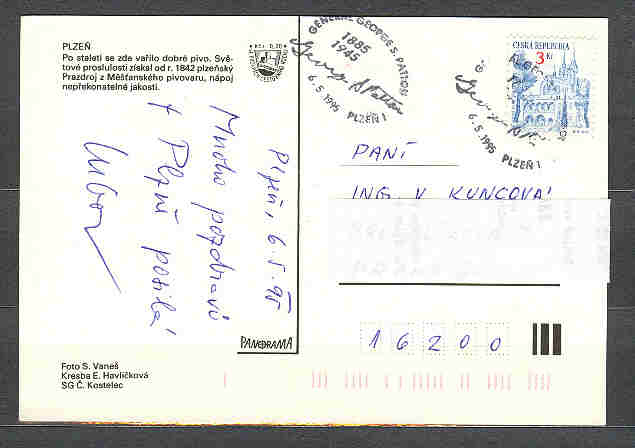 PLZEŇ
Po staletí se zde vařilo dobré pivo. Svě-
tové proslulosti získal od r. 1842 plzeňský
Prazdroj z Měšťanského pivovaru, nápoj
nepřekonatelné jakosti.
Kčs 0,30
Plzeň, 6. 5. 95
Mnoho pozdravů
z Plzně posílá
Lubor
PANORAMA
Foto S. Vaneš
Kresba E. Havlíčková
SG Č. Kostelec
GENERÁL GEORGE S. PATTON
1885
1945
George S Patton
6.5.1995 PLZEŇ 1
ČESKÁ REPUBLIKA
3 Kč
6.5.1995 PLZEŇ 1
PANÍ
ING. V KUNCOVÁ
16200